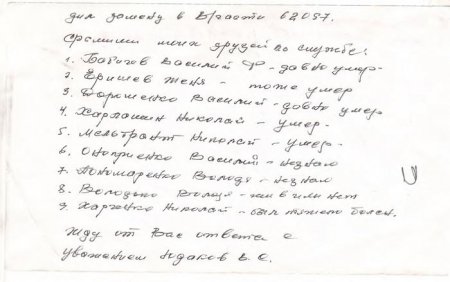 дил замену в В/части 62037.
Фамилии моих друзей по службе:
1. Бабичов Василий Ф - давно умер
2. Еришев Женя - тоже умер
3. Дорошенко Василий - давно умер
4. Харлошин Николай - умер.
5. Мельбрант Николай - умер.
6. Оноприенко Василий - незнаю
7. Пономаренко Володя - незнаю
8. Володько Володя - жив или нет
9. Харченко Николай - был тяжело болен.
Жду от Вас ответа с
уважением Юдаков В. С.